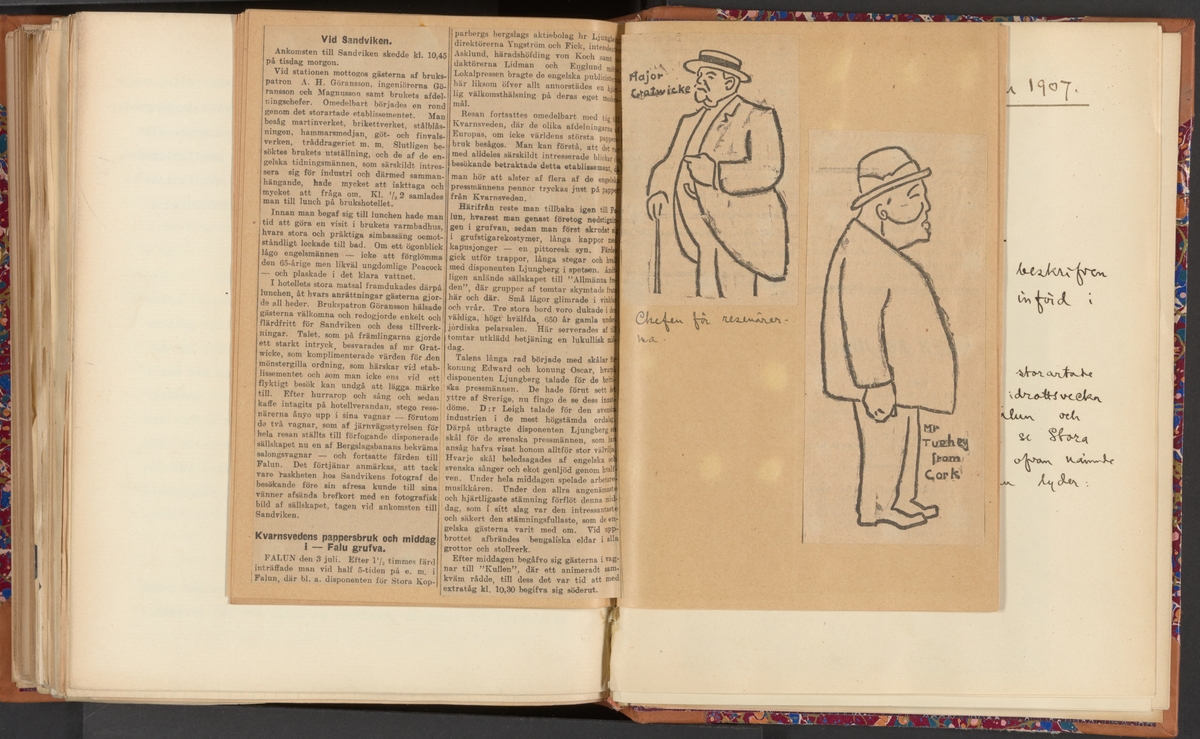 Vid Sandviken.
Ankomsten till Sandviken skedde kl. 10,45
på tisdag morgon.
Vid stationen mottogos gästerna af bruks-
patron A. H. Göransson, ingeniörerna Gö-
ransson och Magnusson samt brukets afdel-
ningschefer. Omedelbart börjades en rond
genom det storartade etablissementet. Man
besåg martinverket, brikettverket, stålblås-
ningen, hammarsmedjan, göt- och finvals-
verken, tråddrageriet m. m. Slutligen be-
söktes brukets utställning, och de af de en-
gelska tidningsmännen, som särskildt intres-
sera sig för industri och därmed samman-
hängande, hade mycket att iakttaga och
mycket att fråga om. Kl. ½ 2 samlades
man till lunch på brukshotellet.
Innan man begaf sig till lunchen hade man
tid att göra en visit i brukets varmbadhus,
hvars stora och präktiga simbassäng oemot-
ståndligt lockade till bad. Om ett ögonblick
lågo engelsmännen — icke att förglömma
den 65-årige men likväl ungdomlige Peacock
— och plaskade i det klara vattnet.
I hotellets stora matsal framdukades därpå
lunchen, åt hvars anrättningar gästerna gjor-
de all heder. Brukspatron Göransson hälsade
gästerna välkomna och redogjorde enkelt och
flärdfritt för Sandviken och dess tillverk-
ningar. Talet, som på främlingarna gjorde
ett starkt intryck, besvarades af mr Grat-
wicke, som komplimenterade värden för den
mönstergilla ordning, som härskar vid etab-
lissementet och som man icke ens vid ett
flyktigt besök kan undgå att lägga märke
till. Efter hurrarop och sång och sedan
kaffe intagits på hotellverandan, stego rese-
närerna ånyo upp i sina vagnar — förutom
de två vagnar, som af järnvägsstyrelsen för
hela resan ställts till förfogande disponerade
sällskapet nu en af Bergslagsbanans bekväma
salongsvagnar — och fortsatte färden till
Falun. Det förtjänar anmärkas, att tack
vare raskheten hos Sandvikens fotograf de
besökande före sin afresa kunde till sina
vänner afsända brefkort med en fotografisk
bild af sällskapet, tagen vid ankomsten till
Sandviken.
Kvarnsvedens pappersbruk och middag
i — Falu grufva.
FALUN den 3 juli. Efter 1½ timmes färd
inträffade man vid half 5-tiden på e. m. i
Falun, där bl. a. disponenten för Stora Kop-
parbergs bergslags aktiebolag hr Ljungbe
direktörerna Yngström och Fick, intend
Asklund, häradshöfding von Koch samt
daktörerna Lidman och Englund
Lokalpressen bragte de engelska publicist
här liksom öfver allt annorstädes en
lig välkomsthälsning på deras eget
mål.
Resan fortsattes omedelbart med tåg
Kvarnsveden, där de olika afdelningarna
Europas, om icke världens största pappe
bruk besågos. Man kan förstå, att det
med alldeles särskildt intresserade blickar
besökande betraktade detta etablissement,
man hör att alster af flera af de engels
pressmännens pennor tryckas just på papp
från Kvarnsveden.
Härifrån reste man tillbaka igen till Fa
lun, hvarest man genast företog nedstign
gen i grufvan, sedan man först skrudat
i grufstigarekostymer, långa kappor
kapusjonger — en pittoresk syn. Färd
gick utför trappor, långa stegar och
med disponenten Ljungberg i spetsen.
ligen anlände sällskapet till "Allmänna
den", där grupper af tomtar skymtade
här och där. Små lågor glimrade i
och vrår. Tre stora bord voro dukade
väldiga, högt hvälfda, 650 år gamla
jordiska pelarsalen. Här serverades af
tomtar utklädd betjäning en lukullisk
dag.
Talens långa rad började med skålar
konung Edward och konung Oscar,
disponenten Ljungberg talade för de
ska pressmännen. De hade förut sett
yttre af Sverige, nu fingo de se dess
döme. D:r Leigh talade för den
industrien i de mest högstämda ordalag
Därpå utbragte disponenten Ljungberg
skål för de svenska pressmännen, som
ansåg hafva visat honom alltför stor välvilja
Hvarje skål beledsagades af engelska
svenska sånger och ekot genljöd genom
ven. Under hela middagen spelade arbetare
musikkåren. Under den allra angenämaste
och hjärtligaste stämning förflöt denna
dag, som i sitt slag var den intressantaste
och säkert den stämningsfullaste, som de en-
gelska gästerna varit med om. Vid upp-
brottet afbrändes bengaliska eldar i alla
grottor och stollverk.
Efter middagen begåfvo sig gästerna i vag-
nar till "Kullen", där ett animeradt sam-
kväm rådde, till dess det var tid att med
extratåg kl. 10,30 begifva sig söderut.
Major
Gratwicke
Chefen för resenärer-
na.
Mr
Turkey
from
Cork
1907.
beskrifven
införd i
storartade
idrottsvecka
och
se Stora
ofvan nämnde
lyder: